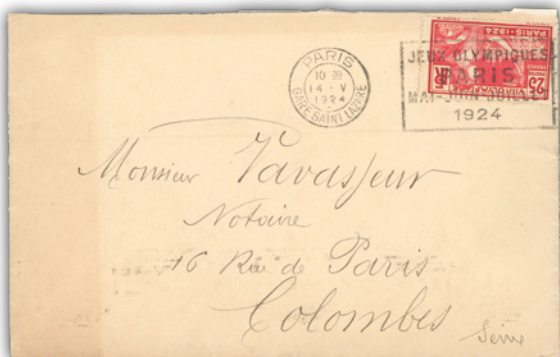 PARIS
10 30
14 - V
1924
GARE SAINT LAZARE
JEUX OLYMPIQUES
PARIS
MAI-JUIN-JUILLET
1924
PARIS-1924
25
RF
Monsieur Vavasseur
Notaire
16 Rue de Paris
Colombes
Seine